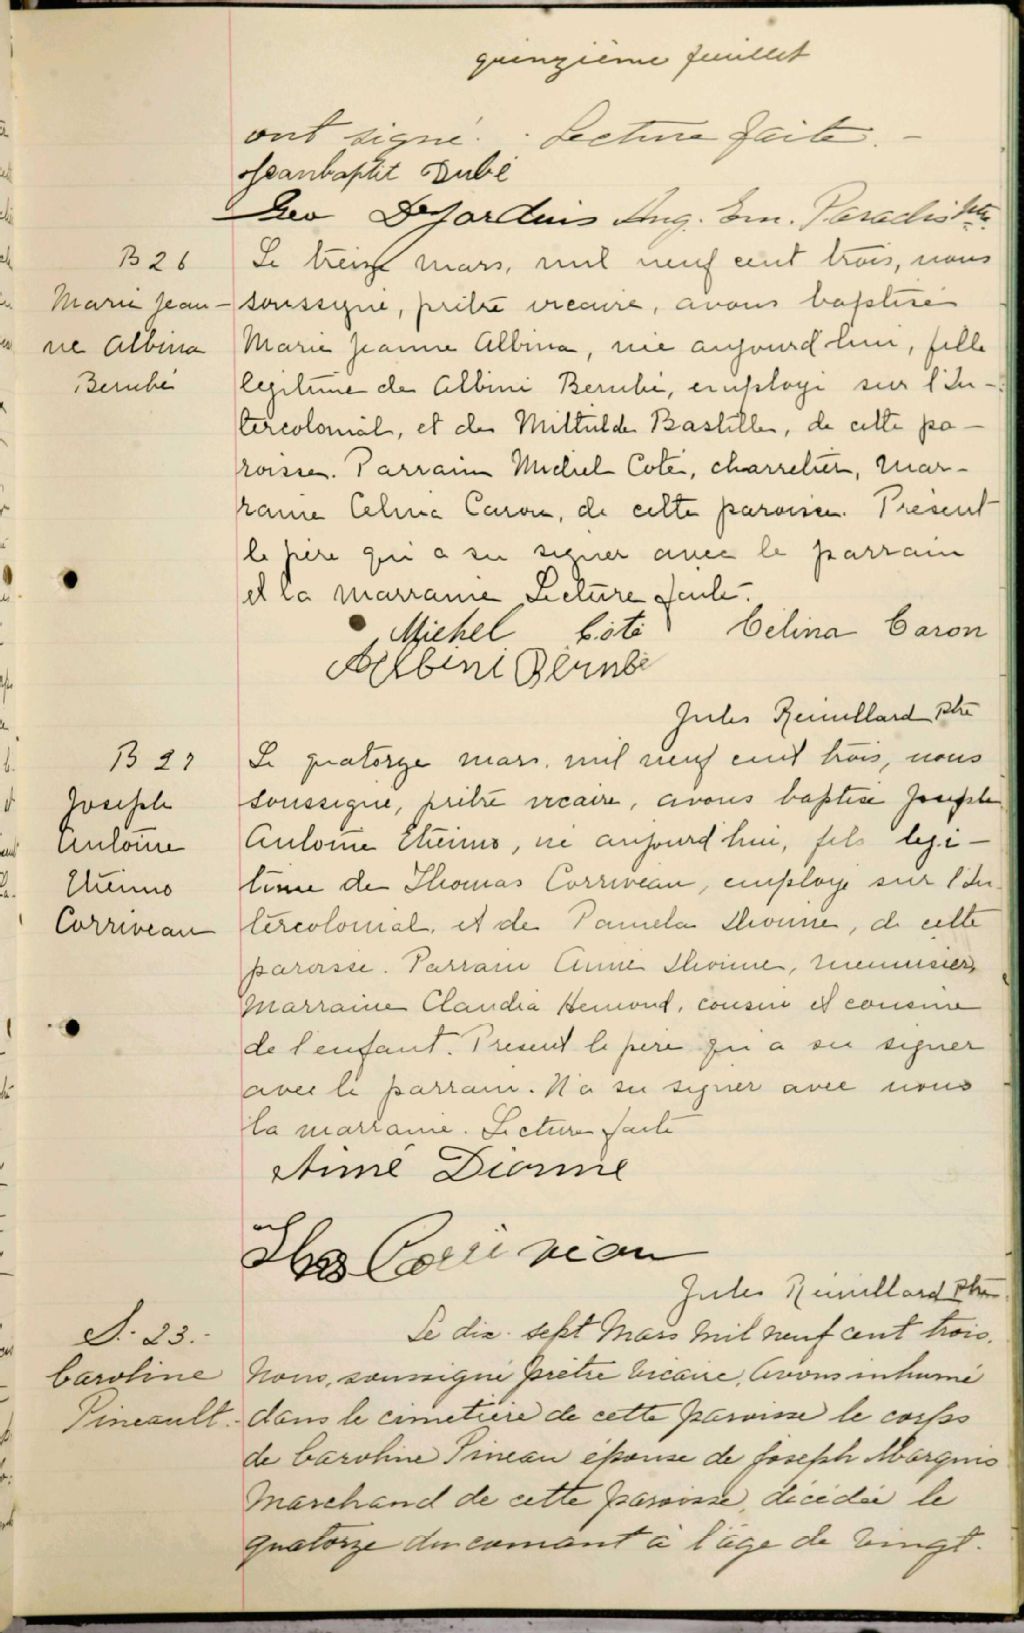 quinzième feuillet
ont signé. Lecture faite. –
Jeanbaptit Dubé
Geo Desjardins Aug. Em. Paradis Ptre
B 26
Marie Jean-
ne Albina
Berubé
Le treize mars, mil neuf cent trois, nous
soussigné, prêtre vicaire, avons baptisé
Marie Jeanne Albina, née aujourd'hui, fille
legitime de Albini Berubé, employé sur l'In-
tercolonial, et de Bastille, de cette pa-
roisse. Parrain Michel Coté, charretier, mar-
raine Celina Caron, de cette paroisse. Présent
le père qui a su signer avec le parrain
et la marraine Lecture faite.
Michel Côté Célina Caron
Albini Bérubé
Jules Remillard Ptre
B 27
Joseph
Antoine
Corriveau
Le quatorze mars, mil neuf cent trois, nous
soussigné, prêtre vicaire, avons baptisé Joseph
Antoine, né aujourd'hui, fils legi-
time de Thomas Corriveau, employé sur l'In-
tercolonial, et de Pamela Dionne, de cette
paroisse. Parrain Aimé Dionne, menuisier,
Marraine Claudia Hemond, cousin et cousine
de l'enfant. Présent le père qui a su signer
avec le parrain. N'a su signer avec nous
la marraine. Lecture faite
Aimé Dionne
Thos Corriveau
Jules Remillard Ptre
S. 23.
Caroline
Pineault.
Le dix-sept Mars mil neuf cent trois,
Nous, soussigné prêtre vicaire, avons inhumé
dans le cimetière de cette paroisse le corps
de Caroline Pineau épouse de Joseph Marquis
Marchand de cette paroisse, décédée le
quatorze du courant à l'âge de vingt-